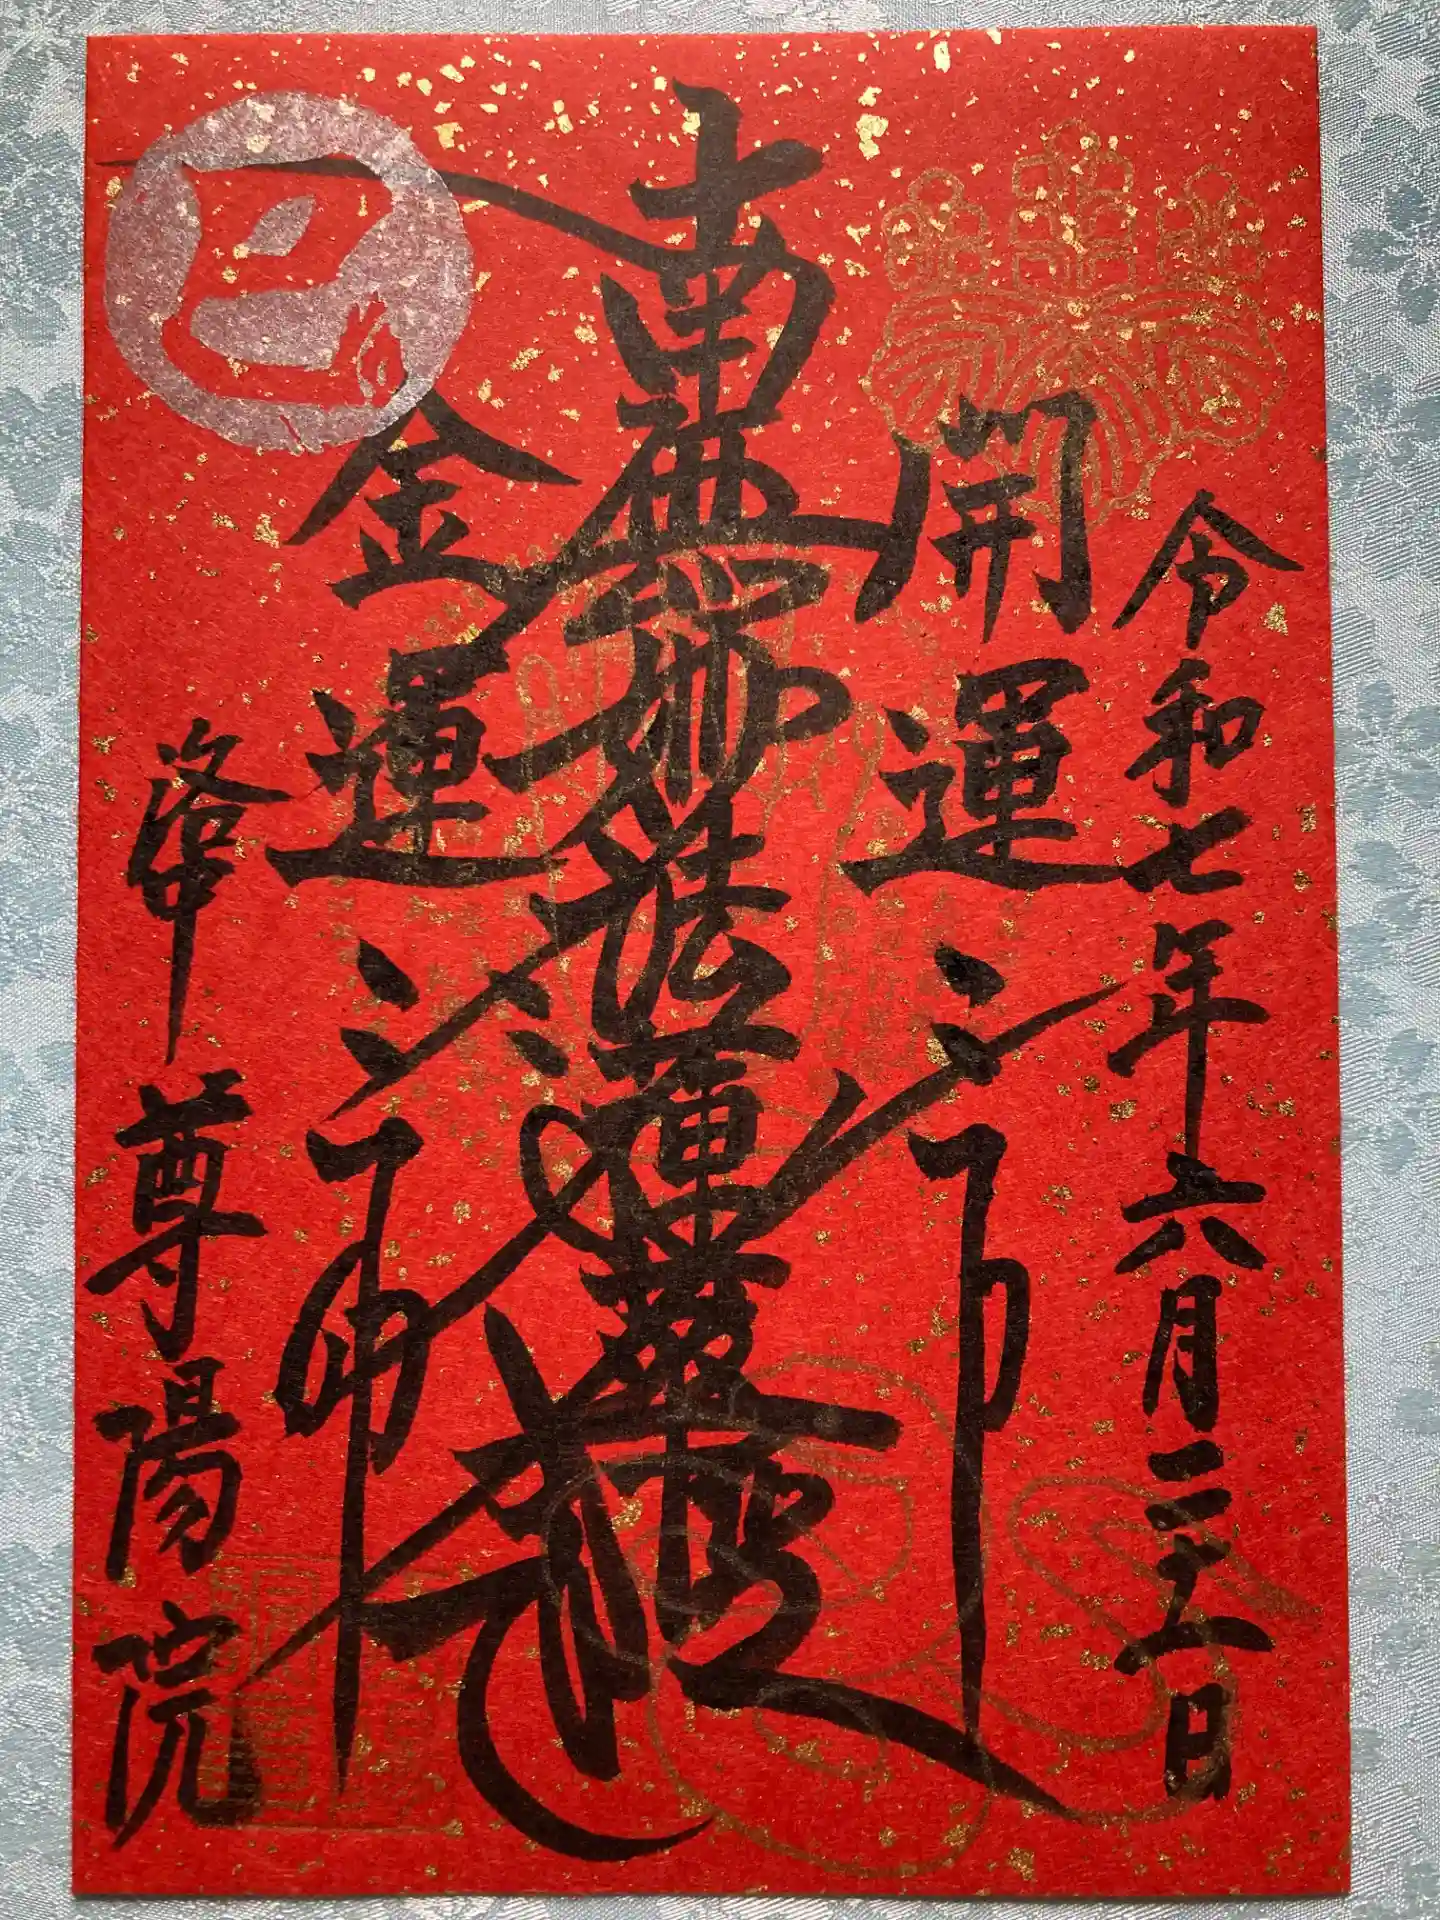 令和七年六月二十一日
開運
南無妙法蓮華経
金運
洛中 尊陽院
巳